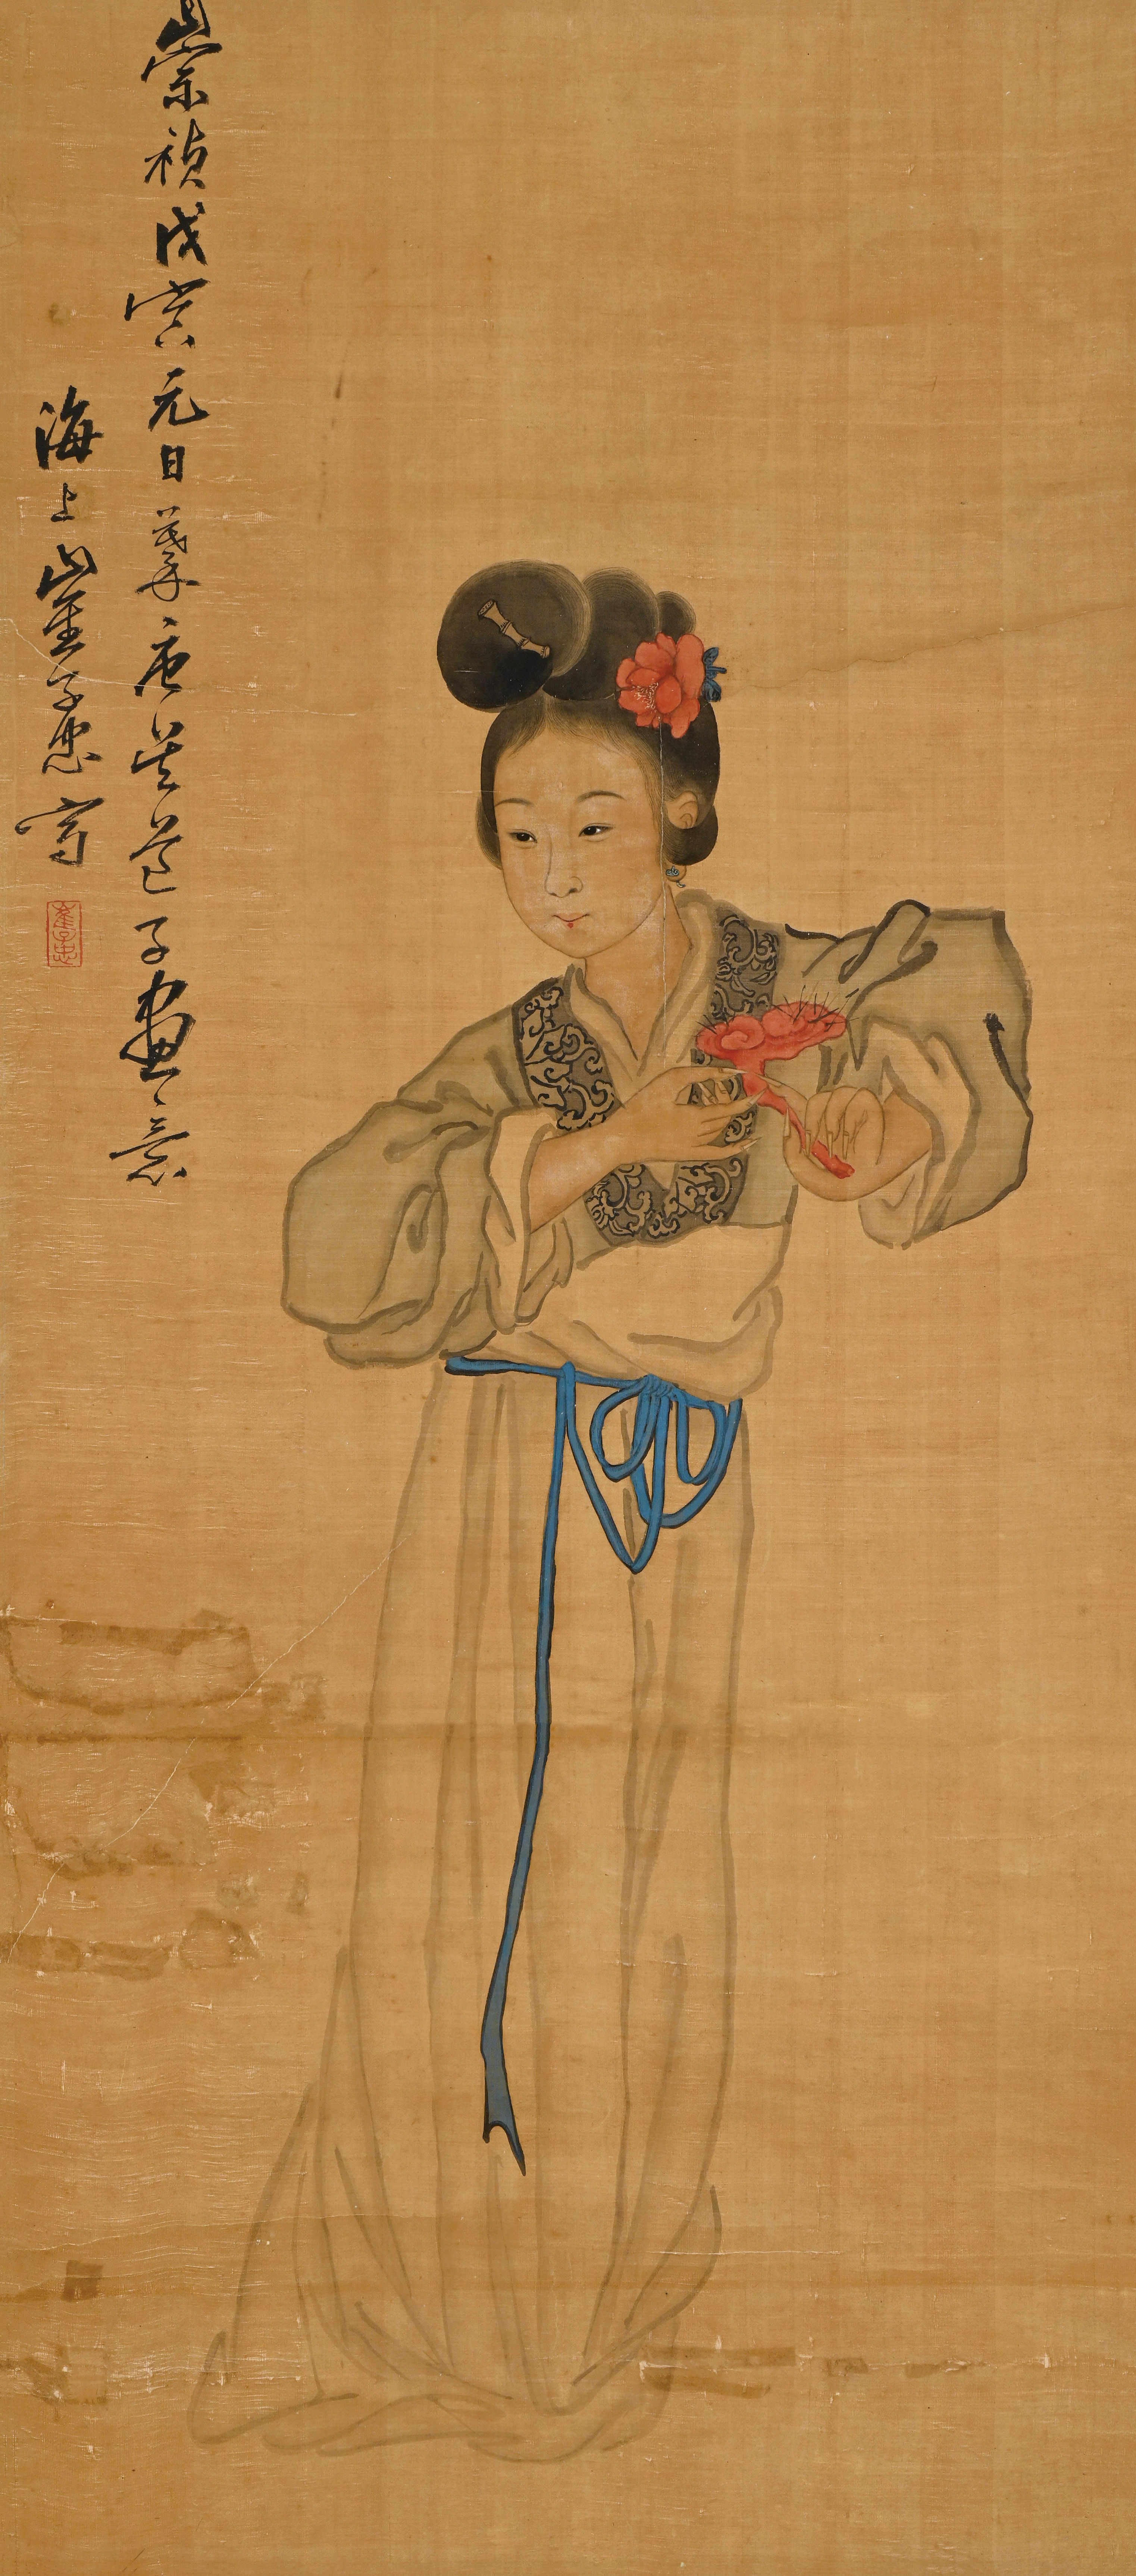 崇禎戊寅元日摹唐吴道子畫意
海上崔子忠寫
崔子忠